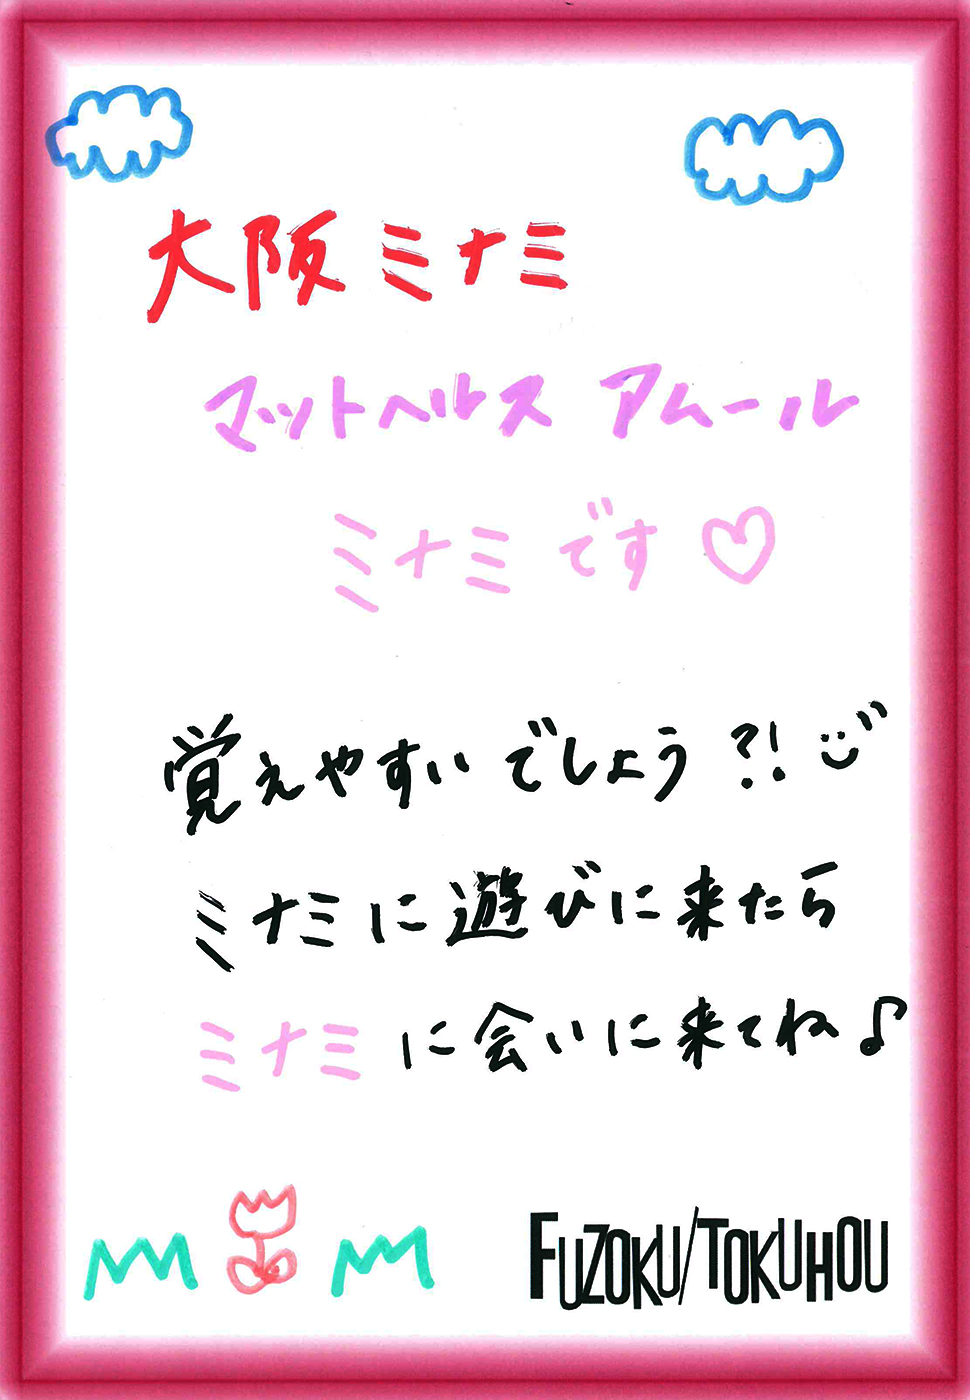 大阪ミナミ
マットヘルス アムール
ミナミです♡
覚えやすいでしょう?!
ミナミに遊びに来たら
ミナミに会いに来てね♪
FUZOKU/TOKUHOU